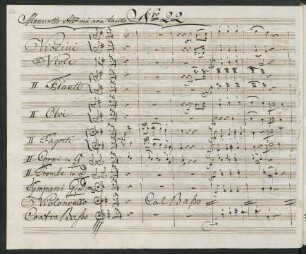 Menuetto Allº ma non tanto Nº 22
Violini
Viole
II Flauti
II Oboi
II Fagotti
II Corni in G
II Trombe in G
Timpani
Violoncello Col Basso
Contra Basso